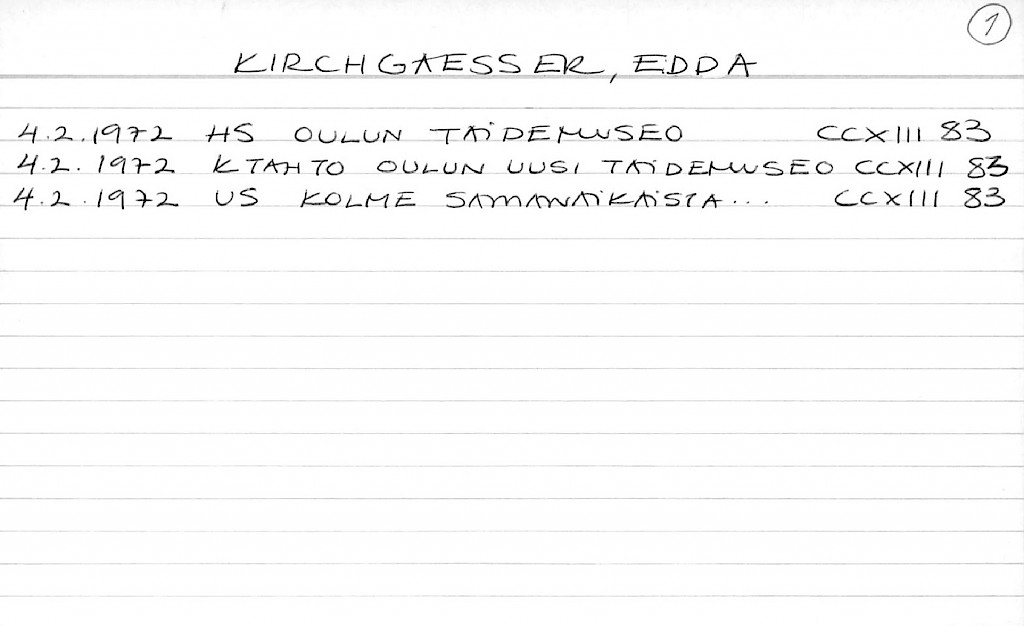 1
KIRCHGAESSER, EDDA
4.2.1972 HS OULUN TAIDEMUSEO CCXIII 83
4.2.1972 K TAHTO OULUN UUSI TAIDEMUSEO CCXIII 83
4.2.1972 US KOLME SAMANAIKAISTA... CCXIII 83